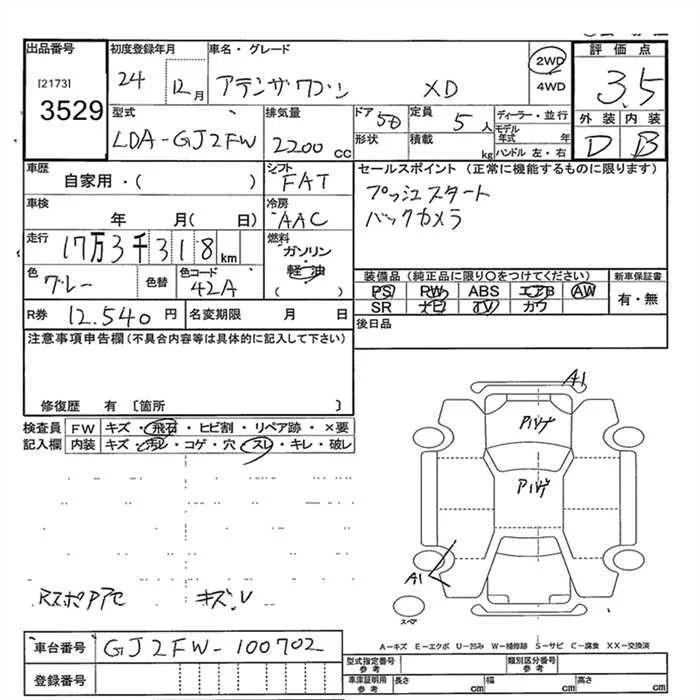 出品番号 初度登録年月 車名・グレード 評価点
[2173] 24 12月 アテンザワゴン XD 2WD 3.5
3529 4WD 外装 内装
型式 排気量 ドア 定員 ディーラー・並行 D B
LDA-GJ2FW 2200cc 5D 5人 モデル年式 年
形状 積載 kg ハンドル 左・右
車歴 シフト セールスポイント(正常に機能するものに限ります)
自家用・( ) FAT プッシュスタート
車検 冷房 バックカメラ
年 月( 日) AAC
走行 燃料
17万3千318km ガソリン
色 色替 色コード 軽油
グレー 42A ( )
装備品(純正品に限り○をつけてください) 新車保証書
PS PW ABS エアB AW 有・無
SR ナビ TV カワ
R券 12,540円 名変期限 月 日 後日品
注意事項申告欄(不具合内容等は具体的に記入して下さい)
修復歴 有〔箇所 〕
検査員 FW キズ・飛石・ヒビ割・リペア跡・×要
記入欄 内装 キズ・汚レ・コゲ・穴・スレ・キレ・破レ
A1
A1
スペア
キズ、U
A-キズ E-エクボ U-凹み W-補修跡 S-サビ C-腐食 XX-交換済
車台番号 GJ2FW-100702
登録番号
型式指定番号 類別区分番号
参考 参考
車庫証明用 長さ 幅 高さ
参考 cm cm cm